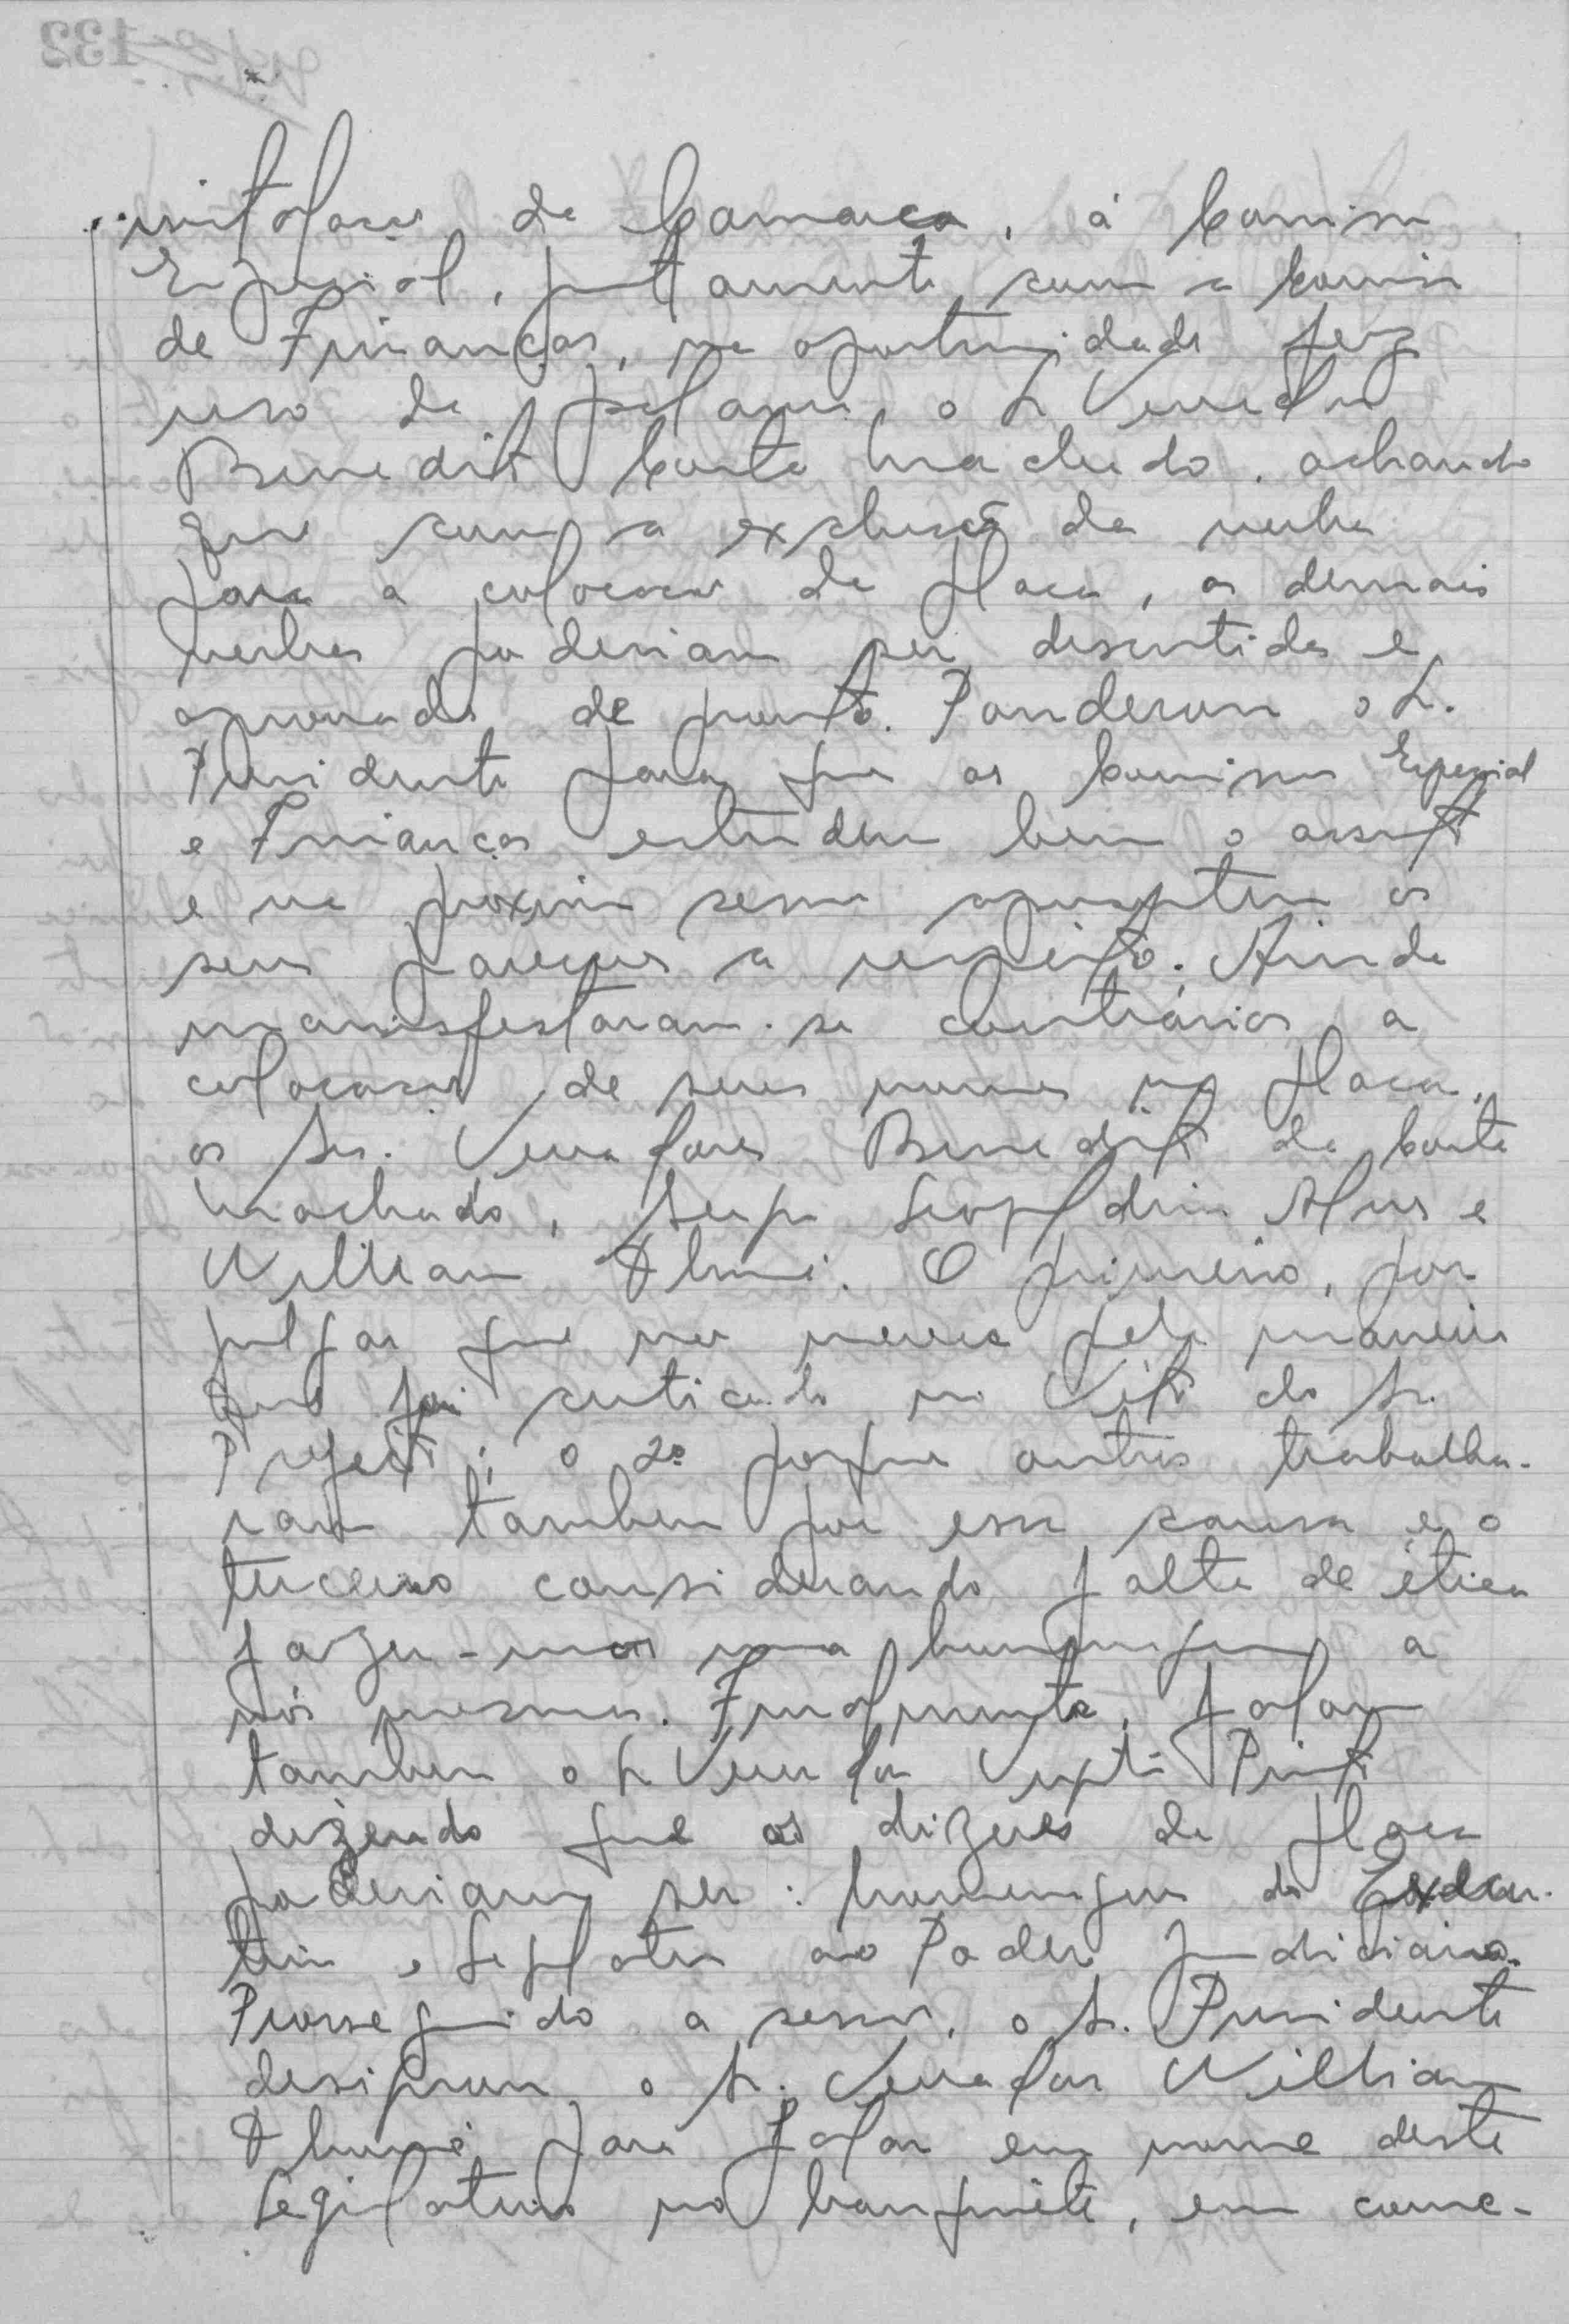 instalação da Comarca, á Comissão
Especial, juntamente com a Comissão
de Finanças, na oportunidade fez
uso da palavra o Sr Vereador
Benedito Costa Machado, achando
que com a exclusão da verba
para a colocação da placa, as demais
verbas poderiam ser discutidas e
aprovadas de pronto. Ponderou o Sr.
Presidente para que as Comissões Especial
e Finanças estudem bem o assunto
e na proxima sessão apresentem os
seus pareceres a respeito. Ainda
manisfestaram-se contrários a
colocação de seus nomes na placa,
os Srs. Vereadores Benedito da Costa
Machado, Sergio Leopoldino Alves e
Willian Thomé. O primeiro, por
julgar que não merece pela maneira
que foi criticado no Veto do Sr.
Prefeito; o 2º porque outros trabalha-
ram tambem por essa causa e o
terceiro considerando falta de ética
fazer-mos uma homenagem a
nós mesmos. Finalmente, falou
tambem o Sr Vereador Pinto
dizendo que os dizeres da placa
poderiam ser: homenagem do Execu-
tivo e Legislativo ao Poder Judiciario.
Prosseguido a sessão, o Sr. Presidente
designou o Sr. Vereador Willian
Thomé para falar em nome deste
Legislativo no banquête, em come-